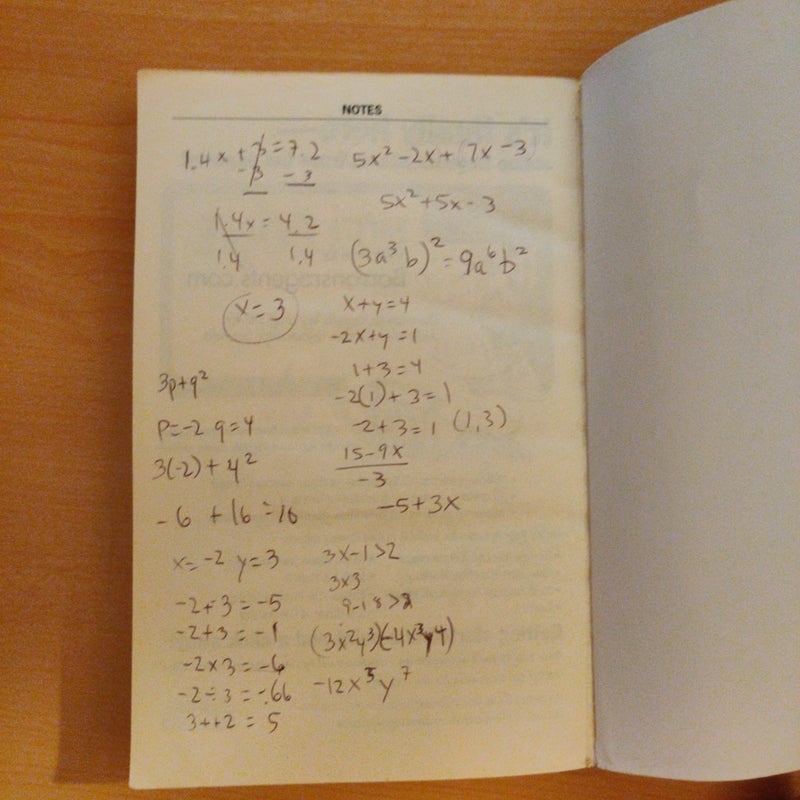 NOTES
1.4x + 3 = 7.2
- 3 - 3
1.4x = 4.2
1.4 1.4
x = 3
3p+q²
P=-2 q=4
3(-2) + 4²
-6 + 16 = 16
x=-2 y=3
-2-3 = -5
-2+3 = -1
-2x3 = -6
-2÷3 = -.66
3++2 = 5
5x² -2x + (7x -3)
5x² +5x - 3
(3a³b)² = 9a⁶b²
x+y=4
-2x+y=1
1+3=4
-2(1)+3=1
-2+3=1 (1,3)
15-9x
-3
-5+3x
3x-1>2
3x3
9-1 8>2
(3x²y³)(-4x³y4)
-12x⁵y⁷